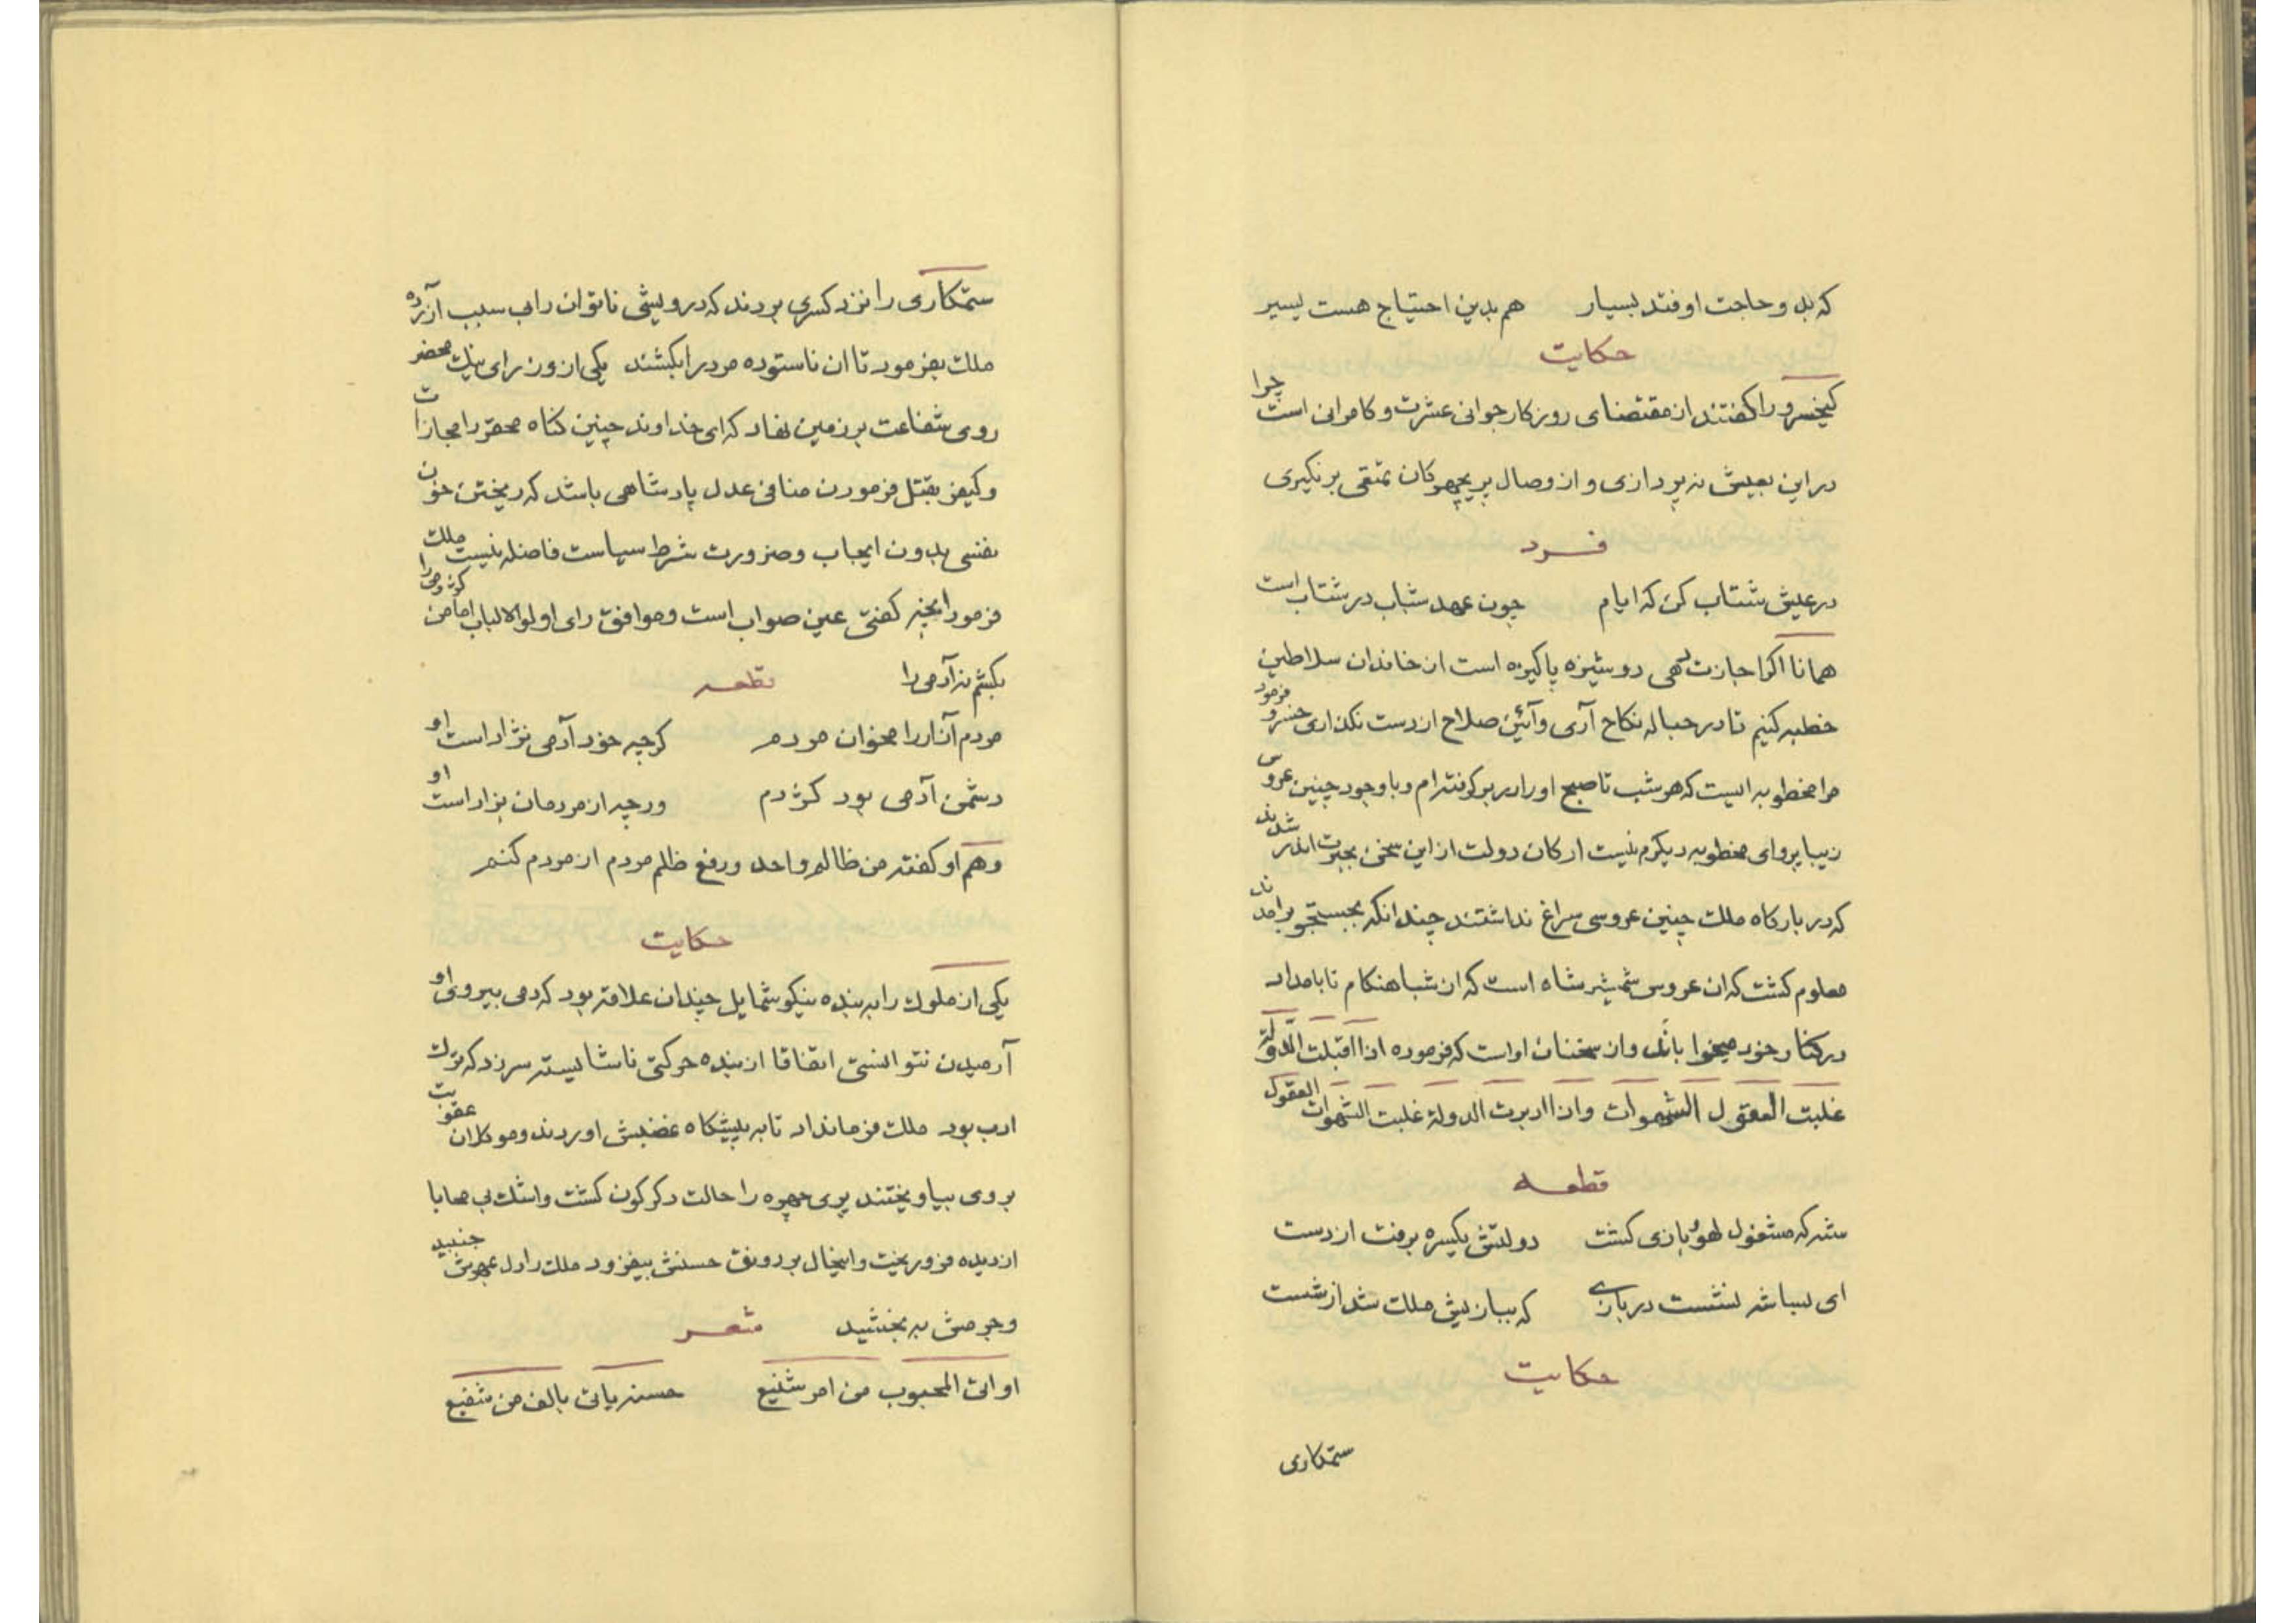 که بدو حاجت اوفتد بسیار    هم بدین احتیاج هست یسیر
حکایت
کیخسرو را کفتند از مقتضای روزکار جوانی عشرت و کامرانی است چرا
در این بعیش نه پردازی و از وصال پریچهرکان تمتعی برنکیری
فرد
در عیش شتاب کن که ایام    چون عهد شباب در شتاب است
همانا اکر اجازت دهی دوشیزه پاکیزه است از خاندان سلاطین
خطبه کنیم تا در حباله نکاح آری و آئین صلاح از دست نکذاری خسرو فرمود
مرا مخطوبه ایست که هر شب تا صبح او را در بر کرفته ام و با وجود چنین عروس
زیبا پروای مخطوبه دیکرم نیست ارکان دولت از این سخن بحیرت اندر شدند
که در بارکاه ملک چنین عروسی سراغ نداشتند چندانکه بجستجو برامدند
معلوم کشت که ان عروس شمشیر شاه است که از شباهنکام تا بامداد
در کنار خود میخواباند و از سخنان او است که فرموده اذا اقبلت الدّولة
غلبت العقول الشهوات و اذا ادبرت الدولة غلبت الشهوات العقول
قطعه
شه که مشغول لهو و بازی کشت    دولتش یکسره برفت از دست
ای بسا شه نشست در بازی    که ببازیش ملک شد از شست
حکایت
ستمکاری
ستمکاری را نزد کسری بردند که درویشی ناتوان را بی سبب آزرده
ملک بفرمود تا ان ناستوده مرد را بکشند یکی از وزرای نیک محضر
روی شفاعت بر زمین نهاد که ای خداوند چنین کناه محقر را مجازات
و کیفر بقتل فرمودن منافی عدل پادشاهی باشد که ریختن خون
نفسی بدون ایجاب و ضرورت شرط سیاست فاضله نیست ملک
فرمود انچه کفتی عین صواب است و موافق رای اولوالالباب اما من کژدمی را
بکشم نه آدمی را    قطعه
مردم آزار را مخوان مردم    کرچه خود آدمی نژاد است او
دشمن آدمی بود کژدم    ورچه از مردمان بزاد است او
و هم او کفته من ظالم واحد و رفع ظلم مردم از مردم کنم
حکایت
یکی از ملوک را به بنده نیکو شمایل چندان علاقه بود که دمی بیروی او
آرمیدن نتوانستی اتفاقا از بنده حرکتی ناشایسته سر زد که ترک
ادب بود ملک فرمانداد تا به پیشکاه غضبش اوردند و موکلان عقوبت
بر وی بیاویختند پری چهره را حالت دکرکون کشت و اشک بی محابا
از دیده فرو ریخت و اینحال بر رونق حسنش بیفزود ملک را دل بمهرش جنبید
و جرمش به بخشید    شعر
او اتی المحبوب من امر شنیع    حسنه یاتی بالف من شفیع